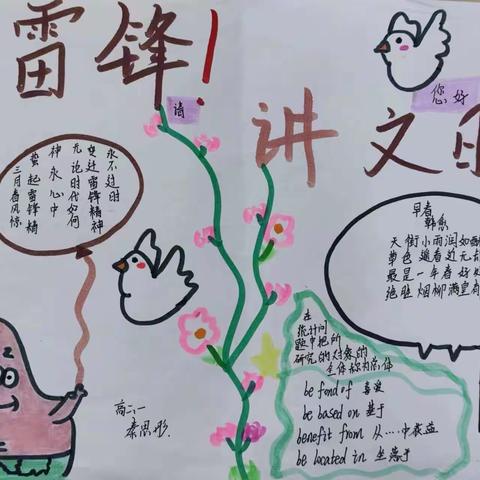 雷锋!
讲文明
请
您好
三月春风惊
起雷锋精
神永心中
无论时代如何
变迁雷锋精神
永不过时
早春
韩愈
天街小雨润如
草色遥看近无
最是一年春好
绝胜烟柳满皇
在
统计问
题中把的
研究的对象的
全体称为总体
be fond of 喜爱
be based on 基于
benefit from 从……中获益
be located in 坐落于
高二、一
康思彤